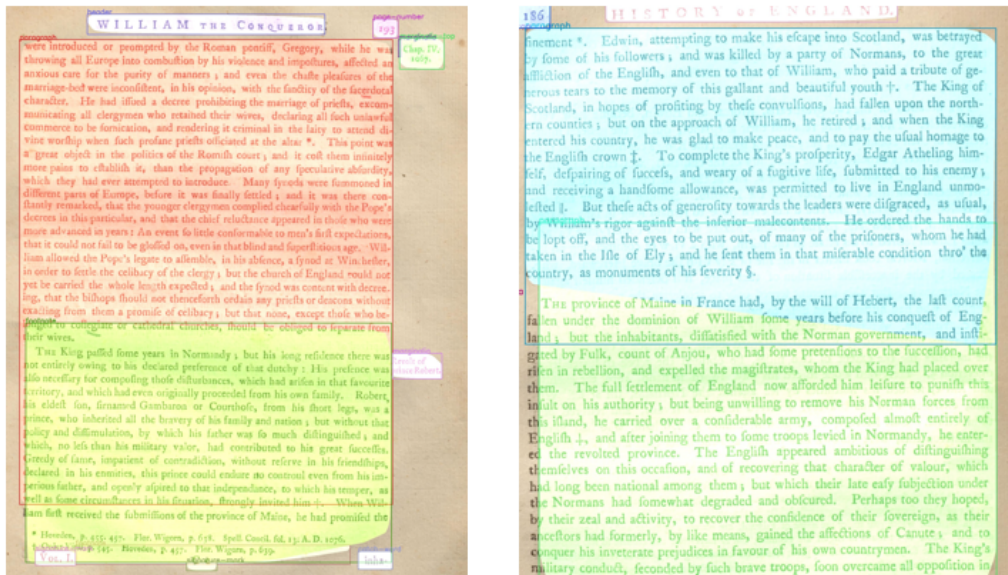 header
WILLIAM THE CONQUEROR.
page-number
193
paragraph
Chap. IV.
1087.
were introduced or prompted by the Roman pontiff, Gregory, while he was
throwing all Europe into combuſtion by his violence and impoſtures, affected an
anxious care for the purity of manners; and even the chaſte pleaſures of the
marriage-bed were inconſiſtent, in his opinion, with the ſanctity of the ſacerdotal
character. He had iſſued a decree prohibiting the marriage of prieſts, excom-
municating all clergymen who retained their wives, declaring all ſuch unlawful
commerce to be fornication, and rendering it criminal in the laity to attend di-
vine worſhip when ſuch profane prieſts officiated at the altar *. This point was
a great object in the politics of the Romiſh court; and it coſt them infinitely
more pains to eſtabliſh it, than the propagation of any ſpeculative abſurdity,
which they had ever attempted to introduce. Many ſynods were ſummoned in
different parts of Europe, before it was finally ſettled; and it was there con-
ſtantly remarked, that the younger clergymen complied chearfully with the Pope's
decrees in this particular, and that the chief reluctance appeared in thoſe who were
more advanced in years: An event ſo little conformable to men's firſt expectations,
that it could not fail to be gloſſed on, even in that blind and ſuperſtitious age. Wil-
liam allowed the Pope's legate to aſſemble, in his abſence, a ſynod at Wincheſter,
in order to ſettle the celibacy of the clergy; but the church of England could not
yet be carried the whole length expected; and the ſynod was content with decree-
ing, that the biſhops ſhould not thenceforth ordain any prieſts or deacons without
exacting from them a promiſe of celibacy; but that none, except thoſe who be-
longed to collegiate or cathedral churches, ſhould be obliged to ſeparate from
their wives.
THE King paſſed ſome years in Normandy; but his long reſidence there was
not entirely owing to his declared preference of that dutchy: His preſence was
alſo neceſſary for compoſing thoſe diſturbances, which had ariſen in that favourite
territory, and which had even originally proceeded from his own family. Robert,
his eldeſt ſon, ſirnamed Gambaron or Courthoſe, from his ſhort legs, was a
prince, who inherited all the bravery of his family and nation; but without that
policy and diſſimulation, by which his father was ſo much diſtinguiſhed; and
which, no leſs than his military valor, had contributed to his great ſucceſſes.
Greedy of fame, impatient of contradiction, without reſerve in his friendſhips,
declared in his enmities, this prince could endure no controul even from his im-
perious father, and openly aſpired to that independance, to which his temper, as
well as ſome circumſtances in his ſituation, ſtrongly invited him †. When Wil-
liam firſt received the ſubmiſſions of the province of Maine, he had promiſed the
Revolt of
prince Robert.
* Hoveden, p. 455. 457. Flor. Wigorn, p. 638. Spell. Concil. fol. 13. A. D. 1076.
p. 545. Hoveden, p. 457. Flor. Wigorn, p. 639.
VOL. I.
inha-
186
HISTORY OF ENGLAND.
paragraph
finement *. Edwin, attempting to make his eſcape into Scotland, was betrayed
by ſome of his followers; and was killed by a party of Normans, to the great
affliction of the Engliſh, and even to that of William, who paid a tribute of ge-
nerous tears to the memory of this gallant and beautiful youth †. The King of
Scotland, in hopes of profiting by theſe convulſions, had fallen upon the north-
ern counties; but on the approach of William, he retired; and when the King
entered his country, he was glad to make peace, and to pay the uſual homage to
the Engliſh crown ‡. To complete the King's proſperity, Edgar Atheling him-
ſelf, deſpairing of ſucceſs, and weary of a fugitive life, ſubmitted to his enemy;
and receiving a handſome allowance, was permitted to live in England unmo-
leſted ||. But theſe acts of generoſity towards the leaders were diſgraced, as uſual,
by William's rigor againſt the inferior malecontents. He ordered the hands to
be lopt off, and the eyes to be put out, of many of the priſoners, whom he had
taken in the Iſle of Ely; and he ſent them in that miſerable condition thro' the
country, as monuments of his ſeverity §.
THE province of Maine in France had, by the will of Hebert, the laſt count,
fallen under the dominion of William ſome years before his conqueſt of Eng-
land; but the inhabitants, diſſatisfied with the Norman government, and inſti-
gated by Fulk, count of Anjou, who had ſome pretenſions to the ſucceſſion, had
riſen in rebellion, and expelled the magiſtrates, whom the King had placed over
them. The full ſettlement of England now afforded him leiſure to puniſh this
inſult on his authority; but being unwilling to remove his Norman forces from
this iſland, he carried over a conſiderable army, compoſed almoſt entirely of
Engliſh ⸸, and after joining them to ſome troops levied in Normandy, he enter-
ed the revolted province. The Engliſh appeared ambitious of diſtinguiſhing
themſelves on this occaſion, and of recovering that character of valour, which
had long been national among them; but which their late eaſy ſubjection under
the Normans had ſomewhat degraded and obſcured. Perhaps too they hoped,
by their zeal and activity, to recover the confidence of their ſovereign, as their
anceſtors had formerly, by like means, gained the affections of Canute; and to
conquer his inveterate prejudices in favour of his own countrymen. The King's
military conduct, ſeconded by ſuch brave troops, ſoon overcame all oppoſition in